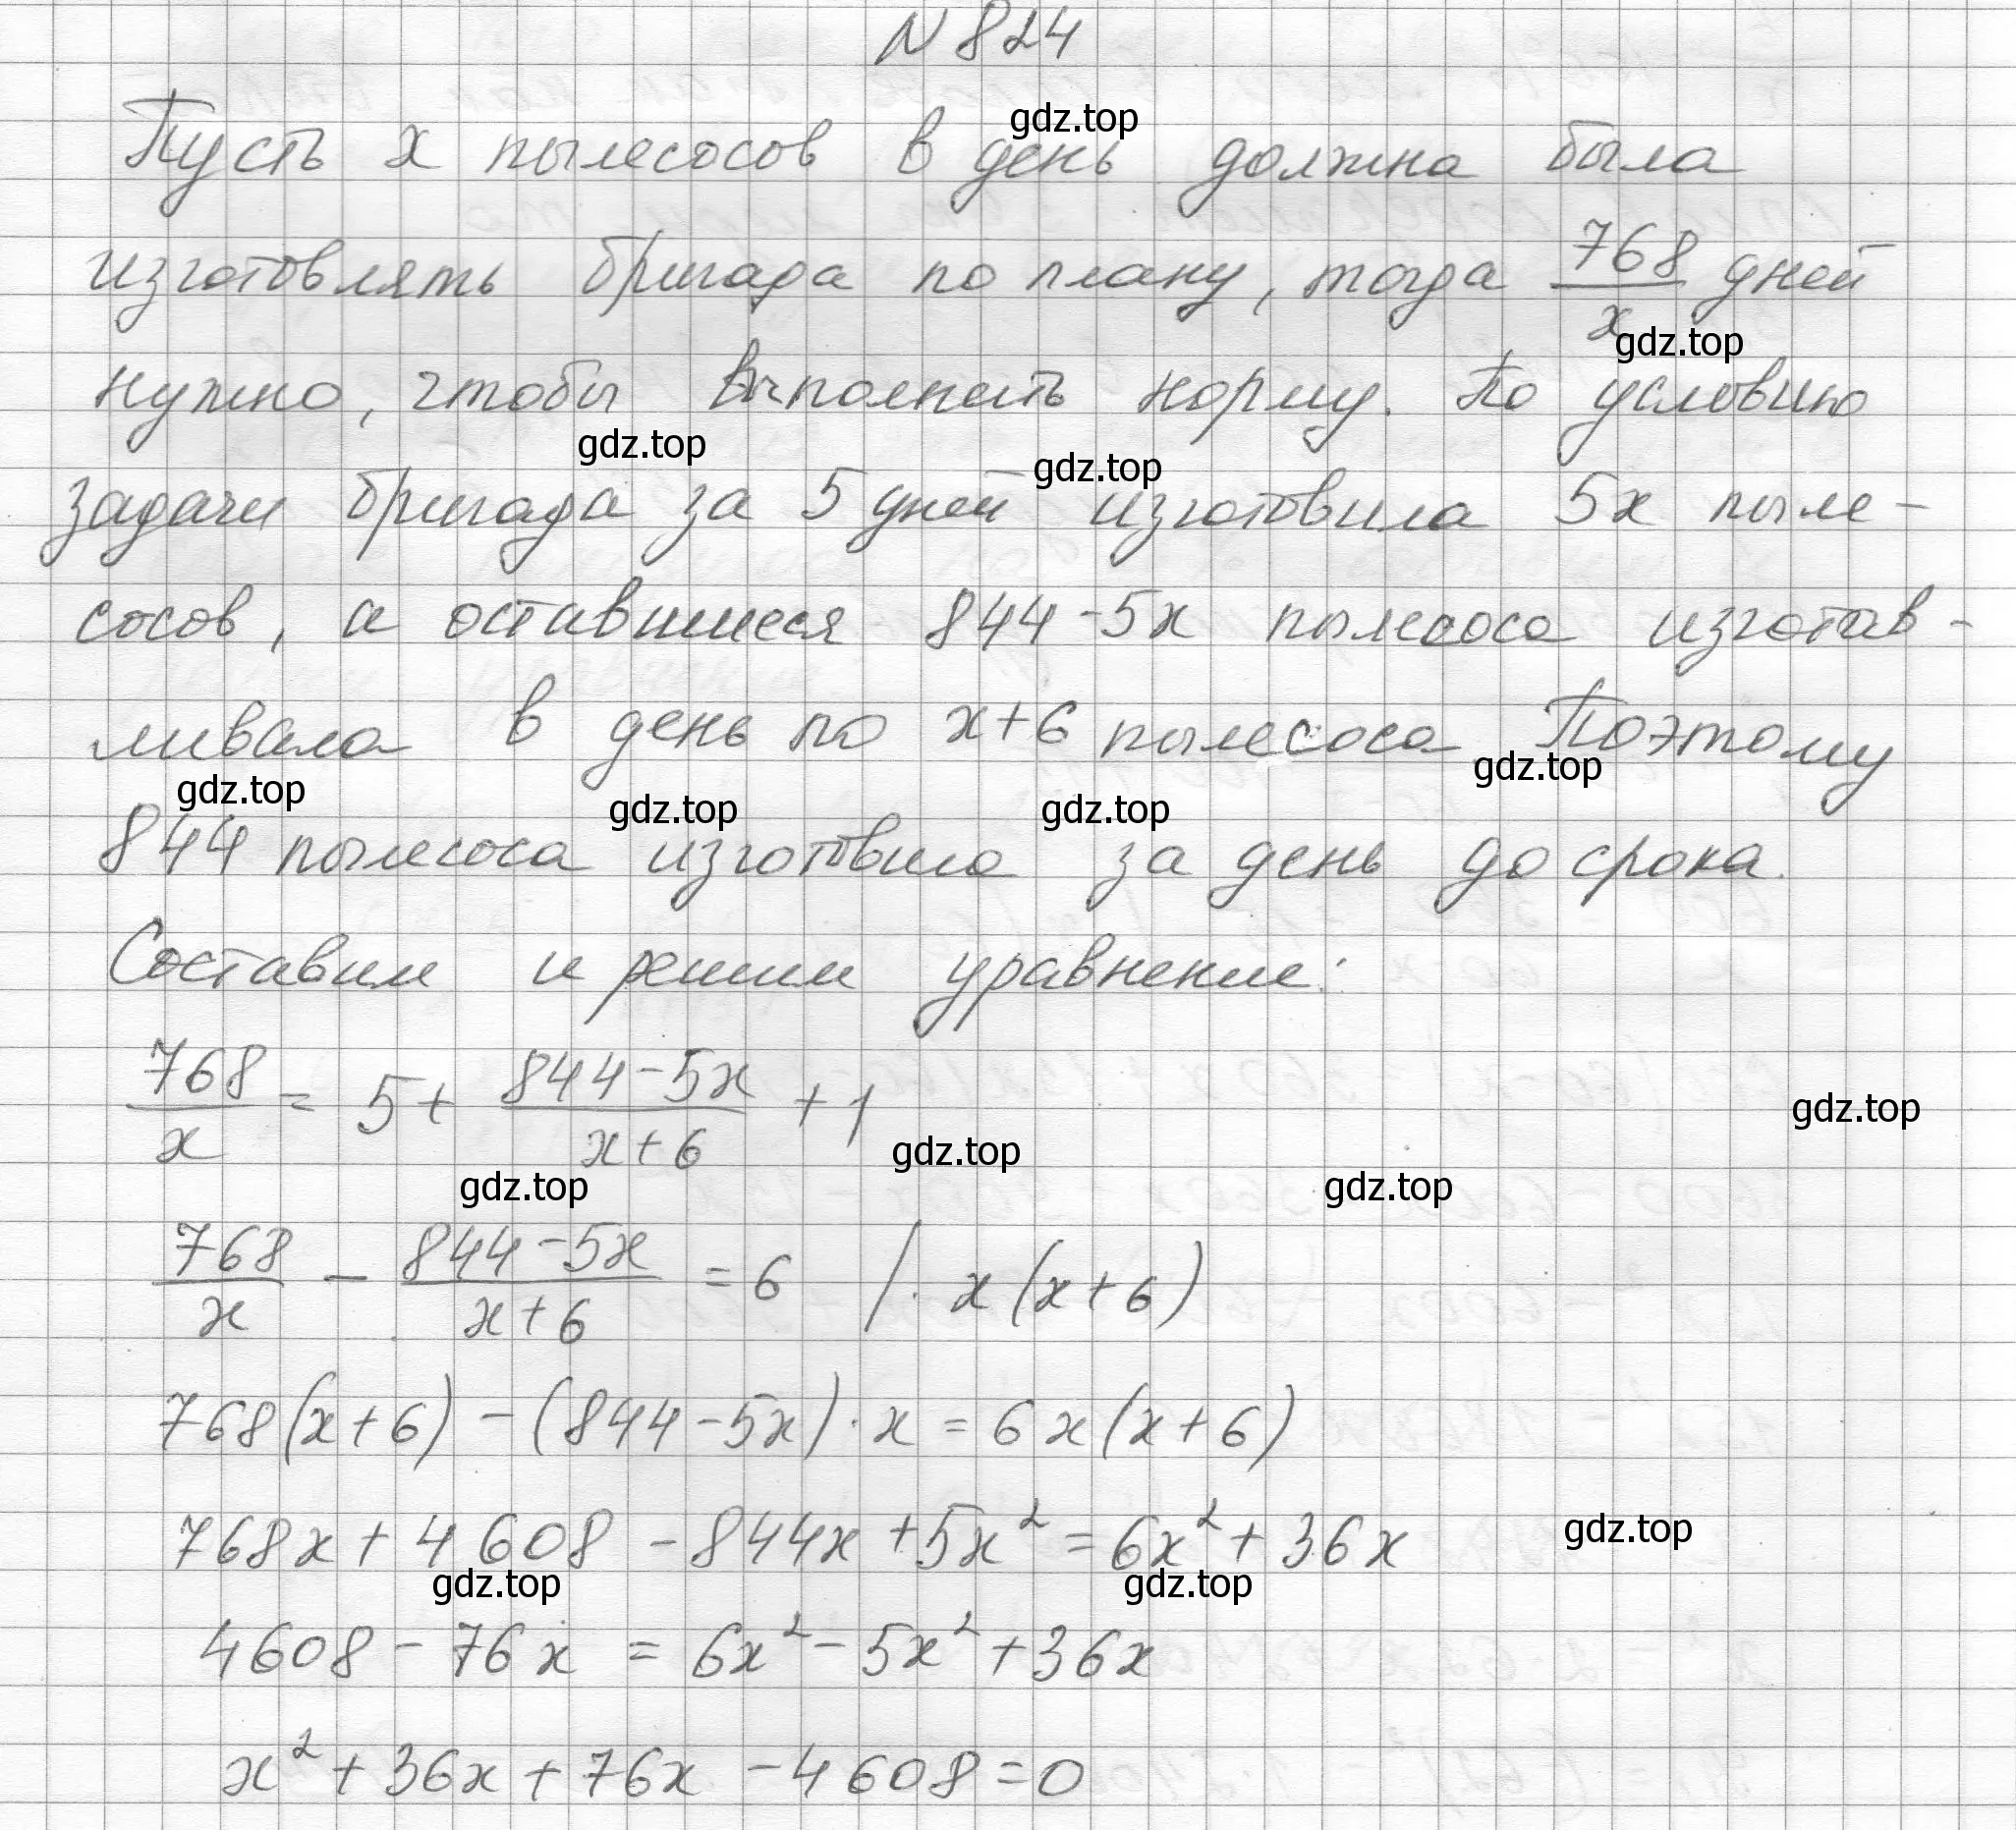 N 824
gdz.top
Пусть x пылесосов в день должна была
изготовлять бригада по плану, тогда 768/x дней
gdz.top
нужно, чтобы выполнить норму. По условию
gdz.top
gdz.top
задачи бригада за 5 дней изготовила 5x пыле-
сосов, а оставшиеся 844-5x пылесоса изготав-
ливала в день по x+6 пылесоса Поэтому
gdz.top
gdz.top
gdz.top
gdz.top
844 пылесоса изготовила за день до срока.
Составим и решим уравнение:
768/x = 5 + (844-5x)/(x+6) + 1
gdz.top
gdz.top
gdz.top
gdz.top
768/x - (844-5x)/(x+6) = 6 / · x(x+6)
768(x+6) - (844-5x) · x = 6x(x+6)
768x + 4608 - 844x + 5x² = 6x² + 36x
gdz.top
gdz.top
gdz.top
4608 - 76x = 6x² - 5x² + 36x
x² + 36x + 76x - 4608 = 0